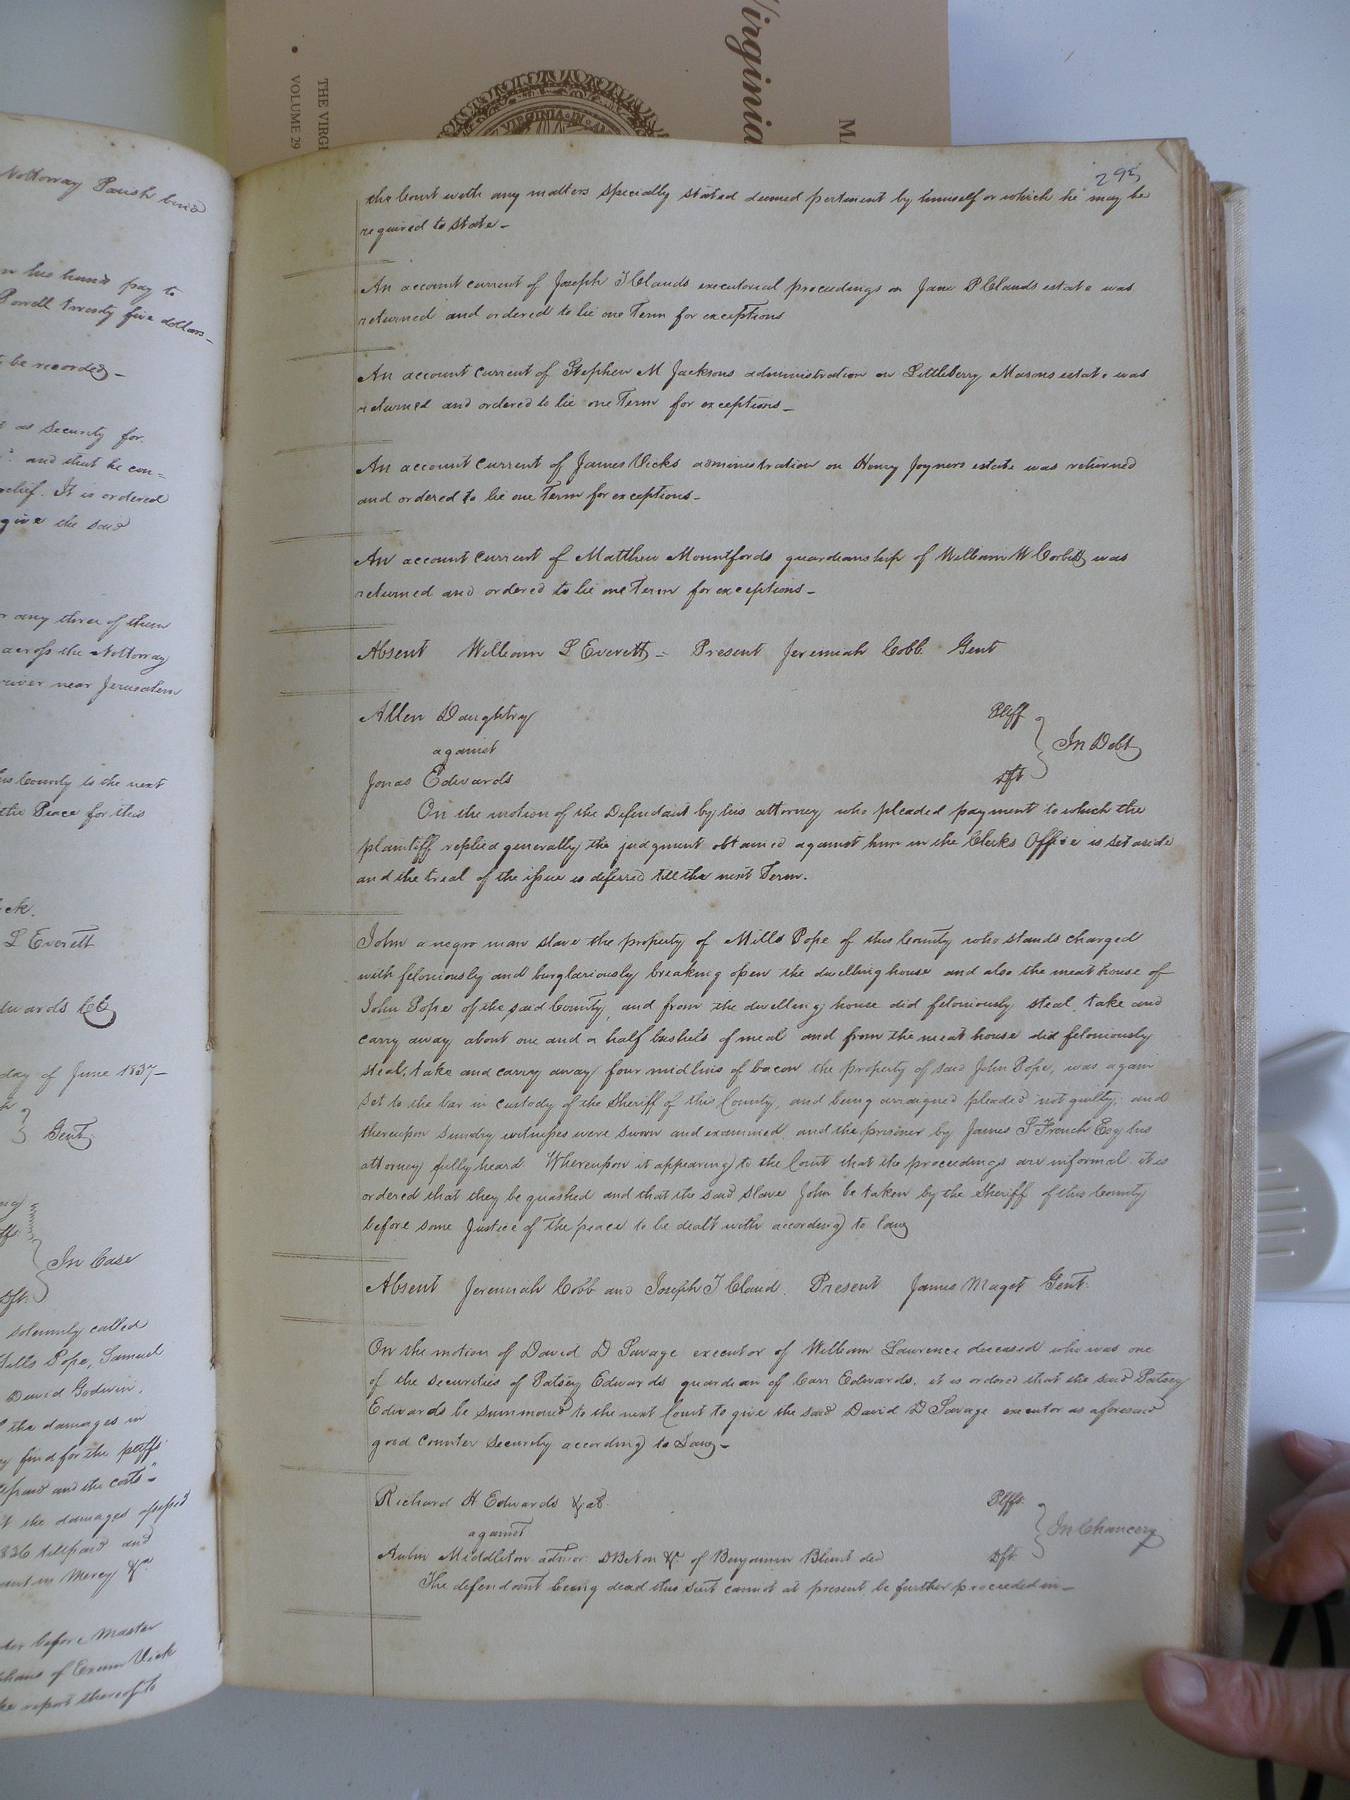 Virginia
THE VIRGI
VOLUME 29
VIRGINIA
MA
Nottoway Parish
in his hands pay to
Powell twenty five dollars_
be recorded_
as security for
and that he con=
relief. It is ordered
give the said
or any three of them
across the Nottoway
river near Jerusalem
County to the next
the Peace for this
L Everett
Edwards
day of June 1837_
Gent
In Case
Dft.
solemnly called
Mills Pope, Samuel
David Godwin,
the damages in
find for the plffs
and the costs"
the damages assessed
1836 till paid and
in Mercy &c.
before Master
orphans of Exum Vick
report thereof to
295
the Court with any matters specially stated deemed pertinent by himself or which he may be
required to state_
An account current of Joseph T Clauds executorial proceedings on Jane P Clauds estate was
returned and ordered to lie one Term for exceptions
An account current of Stephen M Jacksons administration on Littleberry Masons estate was
returned and ordered to lie one Term for exceptions_
An account current of James Vicks administration on Henry Joyners estate was returned
and ordered to lie one Term for exceptions_
An account current of Matthew Mountfords guardianship of William W Corbitt was
returned and ordered to lie one Term for exceptions_
Absent William L Everett = Present Jeremiah Cobb Gent
Allen Daughtry Plff
against In Debt
Jonas Edwards Dft
On the motion of the Defendant by his attorney who pleaded payment to which the
plaintiff replied generally the judgment obtained against him in the Clerks Office is set aside
and the trial of the issue is deferred till the next Term.
John a negro man slave the property of Mills Pope of this County who stands charged
with feloniously and burglariously breaking open the dwelling house and also the meat house of
John Pope of the said County, and from the dwelling house did feloniously steal, take and
carry away about one and a half bushels of meal and from the meat house did feloniously
steal, take and carry away four midlins of bacon the property of said John Pope, was again
set to the bar in custody of the Sheriff of this County, and being arraigned pleaded not guilty; and
thereupon sundry witnesses were sworn and examined and the prisoner by James S French Esq his
attorney fully heard Whereupon it appearing to the Court that the proceedings are informal it is
ordered that they be quashed and that the said slave John be taken by the Sheriff of this County
before some Justice of the peace to be dealt with according to law
Absent Jeremiah Cobb and Joseph T Claud. Present James Maget Gent.
On the motion of David D Savage executor of William Lawrence deceased who was one
of the securities of Patsey Edwards guardian of Carr Edwards, it is ordered that the said Patsey
Edwards be summoned to the next Court to give the said David D Savage executor as aforesaid
good counter Security according to Law_
Richard H Edwards & al. Plffs
against In Chancery
Middleton admor. DBNon &c of Benjamin Blunt ded Dft.
The defendant being dead this suit cannot at present be further proceeded in_